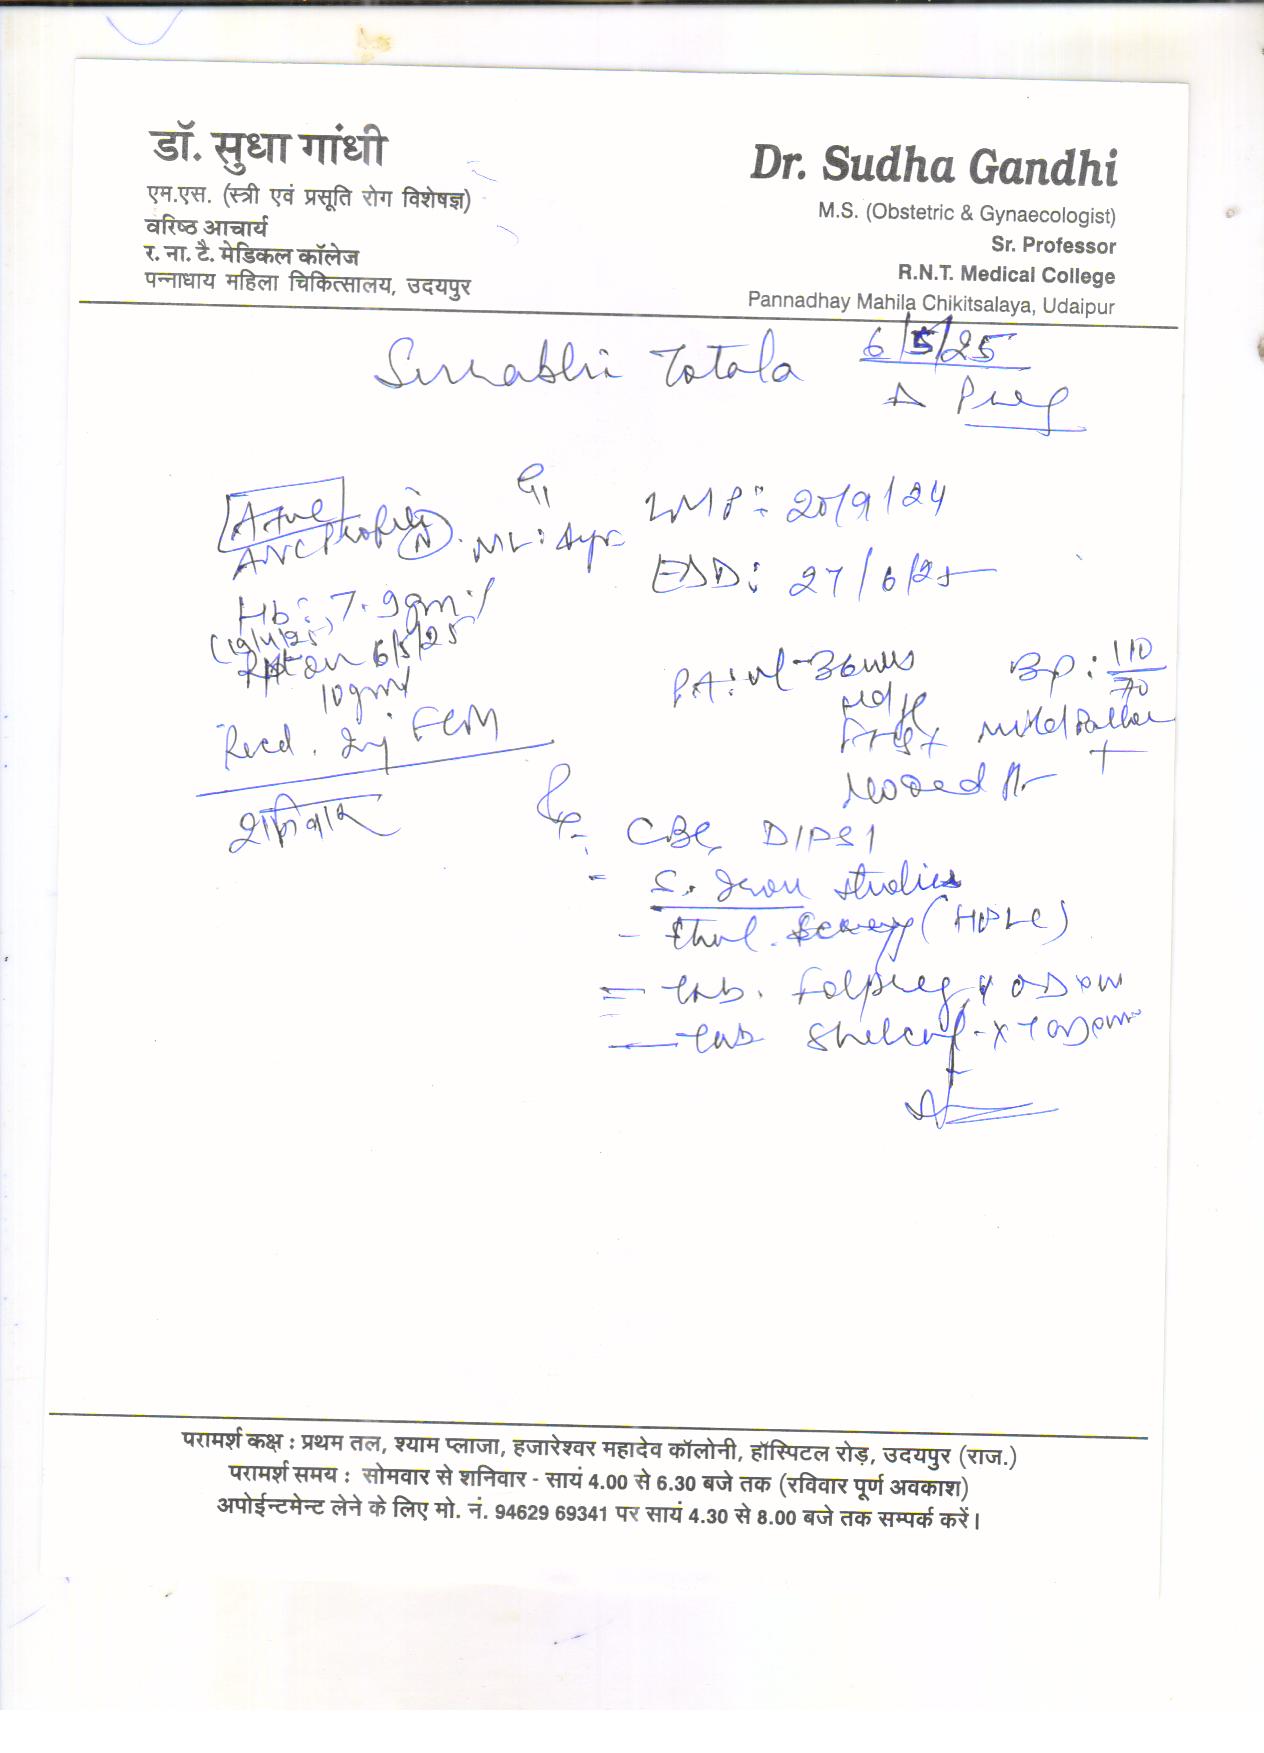 डॉ. सुधा गांधी
एम.एस. (स्त्री एवं प्रसूति रोग विशेषज्ञ)
वरिष्ठ आचार्य
र. ना. टै. मेडिकल कॉलेज
पन्नाधाय महिला चिकित्सालय, उदयपुर
Dr. Sudha Gandhi
M.S. (Obstetric & Gynaecologist)
Sr. Professor
R.N.T. Medical College
Pannadhay Mahila Chikitsalaya, Udaipur
Surabhi Totala 6/5/25
Δ Preg
A +ve
ANC Profile (N)
Hb: 7.9gm%
(19/4/25)
on 6/5/25
10gm%
Recd. Inj FCM
शनिवार
G1
ML: 4yr
LMP: 20/9/24
EDD: 27/6/25
P/A: ut-36wks
BP: 110/70
Mild Pallor
+
Rx
- CBC, DIPSI
- S. Iron studies
- (HPLC)
- Tab. Folpreg x OD x m
- Tab Shelcal-XT OD x m
परामर्श कक्ष : प्रथम तल, श्याम प्लाजा, हजारेश्वर महादेव कॉलोनी, हॉस्पिटल रोड़, उदयपुर (राज.)
परामर्श समय : सोमवार से शनिवार - सायं 4.00 से 6.30 बजे तक (रविवार पूर्ण अवकाश)
अपोईन्टमेन्ट लेने के लिए मो. नं. 94629 69341 पर सायं 4.30 से 8.00 बजे तक सम्पर्क करें।